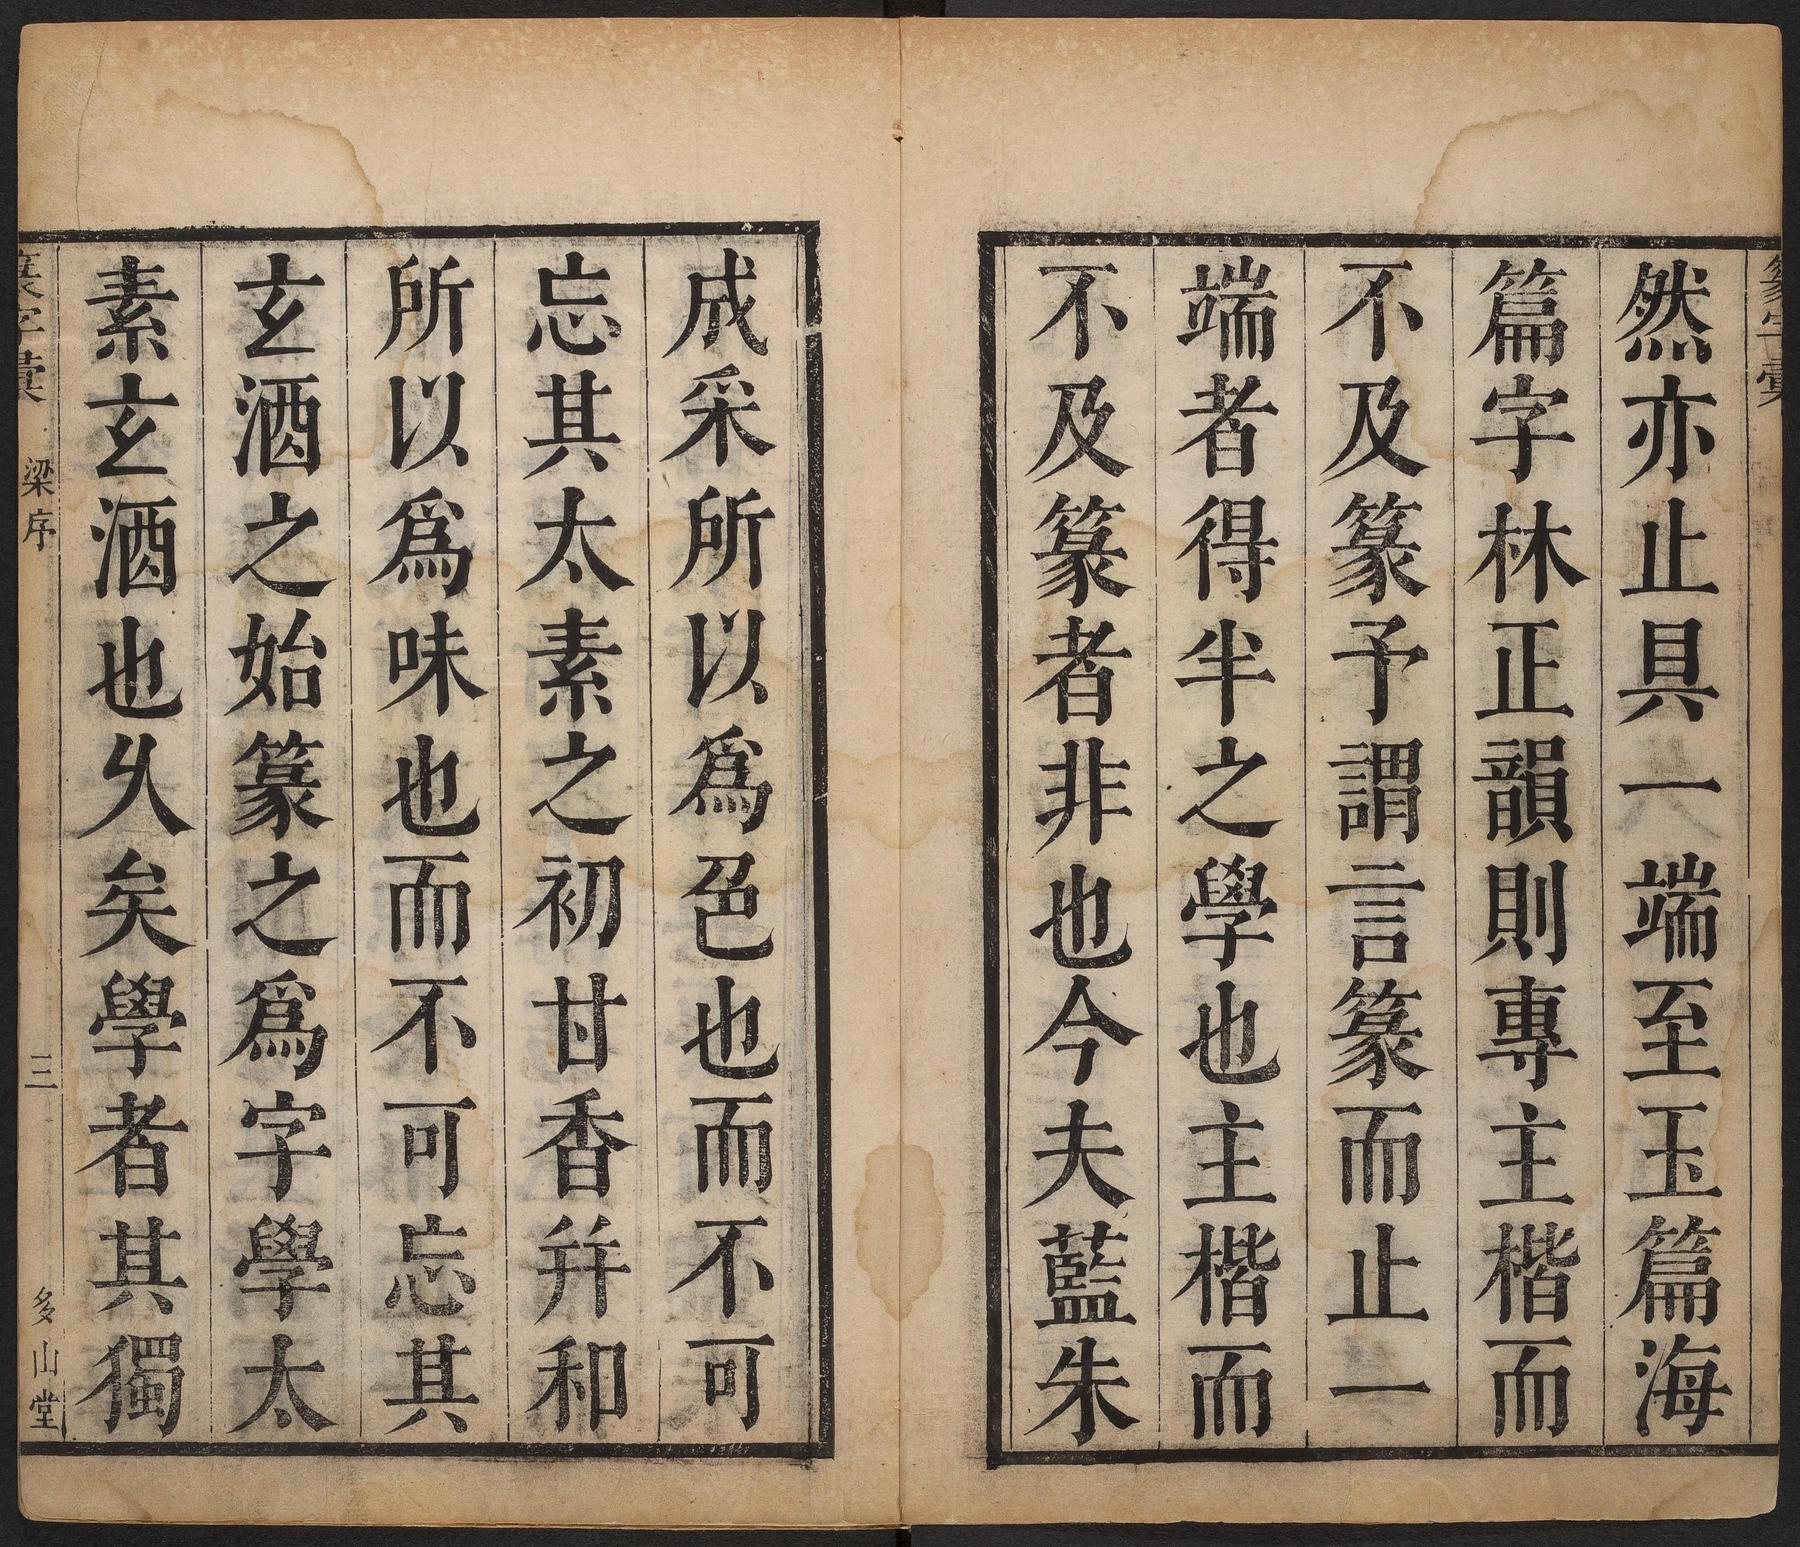 篆字彙
然亦止具一端至玉篇海
篇字林正韻則專主楷而
不及篆予謂言篆而止一
端者得半之學也主楷而
不及篆者非也今夫藍朱
成采所以爲色也而不可
忘其太素之初甘香幷和
所以爲味也而不可忘其
玄酒之始篆之爲字學太
素玄酒也乆矣學者其獨
篆字彙 梁序 三 多山堂